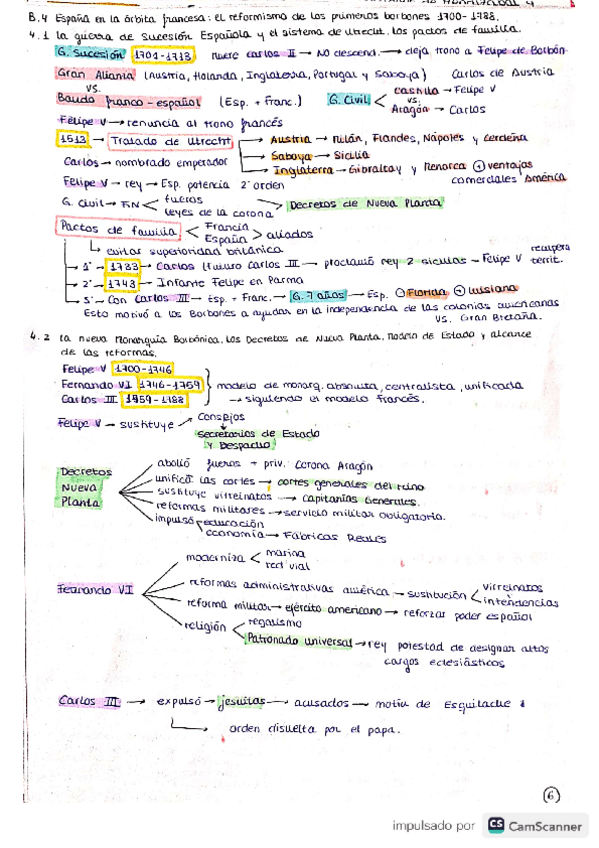 B.4 España en la órbita francesa: el reformismo de los primeros borbones 1700-1788.
4.1 La guerra de Sucesión Española y el sistema de Utrecht. Los pactos de familia.
G. Sucesión 1701-1713 muere Carlos II → NO descend. → deja trono a Felipe de Borbón
Gran Alianza (Austria, Holanda, Inglaterra, Portugal y Saboya) Carlos de Austria
vs.
Bando franco-español (Esp. + Franc.) G. Civil < Castilla → Felipe V
vs.
Aragón → Carlos
Felipe V → renuncia al trono francés
1513 → Tratado de Utrecht → Austria → Milán, Flandes, Nápoles y Cerdeña
→ Saboya → Sicilia
→ Inglaterra → Gibraltar y Menorca + ventajas
comerciales América
Carlos → nombrado emperador
Felipe V → rey → Esp. potencia 2º orden
G. Civil → FIN < fueros
leyes de la corona > Decretos de Nueva Planta
Pactos de familia < Francia
España > aliados
↳ evitar superioridad británica
→ 1º → 1733 → Carlos (futuro Carlos III → proclamó rey 2 sicilias → Felipe V recupera
territ.
→ 2º → 1743 → Infante Felipe en Parma
→ 3º → Con Carlos III → Esp. + Franc. → G. 7 años → Esp. - Florida + Luisiana
Esto motivó a los Borbones a ayudar en la independencia de las colonias americanas
vs. Gran Bretaña.
4.2 La nueva Monarquía Borbónica. Los Decretos de Nueva Planta. Modelo de Estado y alcance
de las reformas.
Felipe V 1700-1746
Fernando VI 1746-1759 } modelo de monarq. absoluta, centralista, unificada
Carlos III 1959-1188 → siguiendo el modelo francés.
Felipe V → sustituye → Consejos
Secretarios de Estado
y Despacho
Decretos Nueva Planta
abolió fueros + priv. Corona Aragón
unificó las cortes → cortes generales del reino
sustituye virreinatos → Capitanías Generales.
reformas militares → servicio militar obligatorio.
impulsó → educación
economía → Fábricas Reales
Fernando VI
moderniza < marina
red vial
reformas administrativas américa → sustitución < virreinatos
intendencias
reforma militar → ejército americano → reforzar poder español
religión < regalismo
Patronado universal → rey potestad de designar altos
cargos eclesiásticos
Carlos III → expulsó → jesuitas → acusados → motín de Esquilache
↳ orden disuelta por el papa.
6
impulsado por CS CamScanner